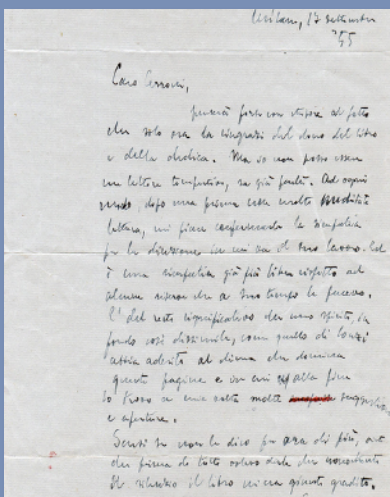 Milano, 17 settembre
'55
Caro Cerroni,
penserà forse con stupore al fatto
che solo ora la ringrazi del dono del libro
e della dedica. Ma io non posso essere
un lettore tempestivo, sa già perché. Ad ogni
modo, dopo una prima e non molto
lettura, mi piace confermarle la simpatia
per la direzione in cui va il suo lavoro. Ed
è una simpatia già più libera rispetto ad
alcune riserve che a suo tempo le facevo.
E' del resto significativo che uno spirito, in
fondo così dissimile, come quello di
abbia aderito al clima che domina
queste pagine e in cui alla fine
io trovo a mia volta molte suggestioni
e aperture.
Scusi se non le dico per ora di più,
che prima di tutto volevo dirle che nonostante
il silenzio il libro mi era giunto gradito.